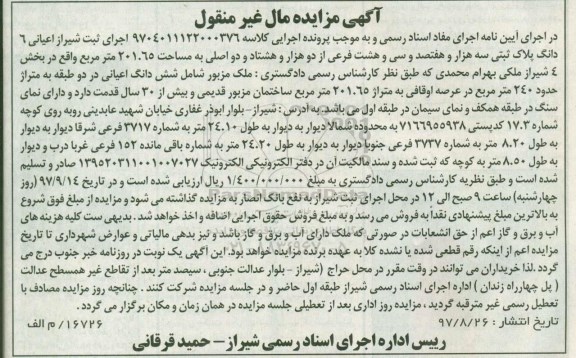 آگهی مزایده مال غیر منقول
در اجرای آیین نامه اجرای مفاد اسناد رسمی و به موجب پرونده اجرایی کلاسه ۹۷۰۴۰۱۱۱۲۲۰۰۰۳۷۶ اجرای ثبت شیراز اعیانی ۶
دانگ پلاک ثبتی سه هزار و هفتصد و سی و هشت فرعی از دو هزار و هشتاد و دو اصلی به مساحت ۲۰۱.۶۵ متر مربع واقع در بخش
۴ شیراز ملکی بهرام محمدی که طبق نظر کارشناس رسمی دادگستری : ملک مزبور شامل شش دانگ اعیانی در دو طبقه به متراژ
حدود ۲۴۰ متر مربع در عرصه اوقافی به متراژ ۲۰۱.۶۵ متر مربع ساختمان مزبور قدیمی و بیش از ۳۰ سال قدمت دارد و دارای نمای
سنگ در طبقه همکف و نمای سیمان در طبقه اول می باشد. به آدرس : شیراز- بلوار ابوذر غفاری خیابان شهید عابدینی روبه روی کوچه
شماره ۱۷.۳ کدپستی ۷۱۶۶۹۵۵۹۳۸ به محدوده شمالا دیوار به دیوار به طول ۲۴.۱۰ متر به شماره ۳۷۱۷ فرعی شرقا دیوار به دیوار
به طول ۸.۲۰ متر به شماره ۳۷۳۷ فرعی جنوبا دیوار به دیوار به طول ۲۴.۲۰ متر به شماره باقی مانده ۱۵۲ فرعی غربا درب و دیوار
به طول ۸.۵۰ متر به کوچه که ثبت شده و سند مالکیت آن در دفتر الکترونیکی الکترونیک ۱۳۹۵۲۰۳۱۱۰۰۱۰۰۷۰۲۷ صادر و تسلیم
شده است و طبق نظریه کارشناس رسمی دادگستری به مبلغ ۱/۴۰۰/۰۰۰/۰۰۰ ریال ارزیابی شده است و در تاریخ ۹۷/۹/۱۴ (روز
چهارشنبه) ساعت ۹ صبح الی ۱۲ در محل اجرای ثبت شیراز به نفع بانک انصار به مزایده گذاشته می شود و مزایده از مبلغ فوق شروع
به بالاترین مبلغ پیشنهادی نقدا به فروش می رسد و به مبلغ فروش حقوق اجرایی اضافه و اخذ خواهد شد. بدیهی ست کلیه هزینه های
آب و برق و گاز اعم از حق انشعابات در صورتی که ملک دارای آب و برق و گاز باشد و نیز بدهی مالیاتی و عوارض شهرداری تا تاریخ
مزایده اعم از اینکه رقم قطعی شده یا نشده کلا به عهده برنده مزایده خواهد بود. این آگهی یک نوبت در روزنامه خبر جنوب درج می
گردد .لذا خریداران می توانند در وقت مقرر در محل حراج (شیراز - بلوار عدالت جنوبی ، سیصد متر بعد از تقاطع غیر همسطح عدالت
( پل چهارراه زندان ) اداره اجرای اسناد رسمی شیراز طبقه اول حاضر و در جلسه مزایده شرکت کنند . چنانچه روز مزایده مصادف با
تعطیل رسمی غیر مترقبه گردید ، مزایده روز اداری بعد از تعطیلی جلسه مزایده در همان زمان و مکان برگزار می گردد .
تاریخ انتشار : ۹۷/۸/۲۶
۱۶۷۲۶/ م الف
رییس اداره اجرای اسناد رسمی شیراز - حمید فرقانی